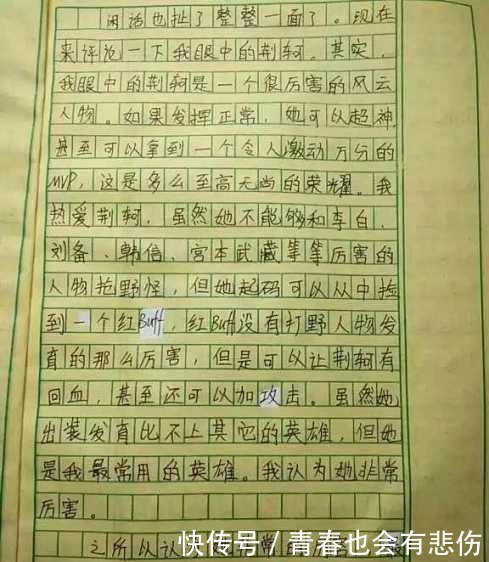 闲话也扯了整整一面了。现在
来评论一下我眼中的荆轲。其实,
我眼中的荆轲是一个很厉害的风云
人物。如果发挥正常,她可以超神,
甚至可以拿到一个令人激动万分的
MVP,这是多么至高无尚的荣耀。我
热爱荆轲,虽然她不能够和李白、
刘备、韩信、宫本武藏等等厉害的
人物抢野怪,但她起码可以从中捡
到一个红Buff,红Buff没有打野人物发
育的那么厉害,但是可以让荆轲有
回血,甚至还可以加攻击。虽然她
出装发育比不上其它的英雄,但她
是我最常用的英雄。我认为她非常
厉害。
之所以认
快传号/青春也会有悲伤